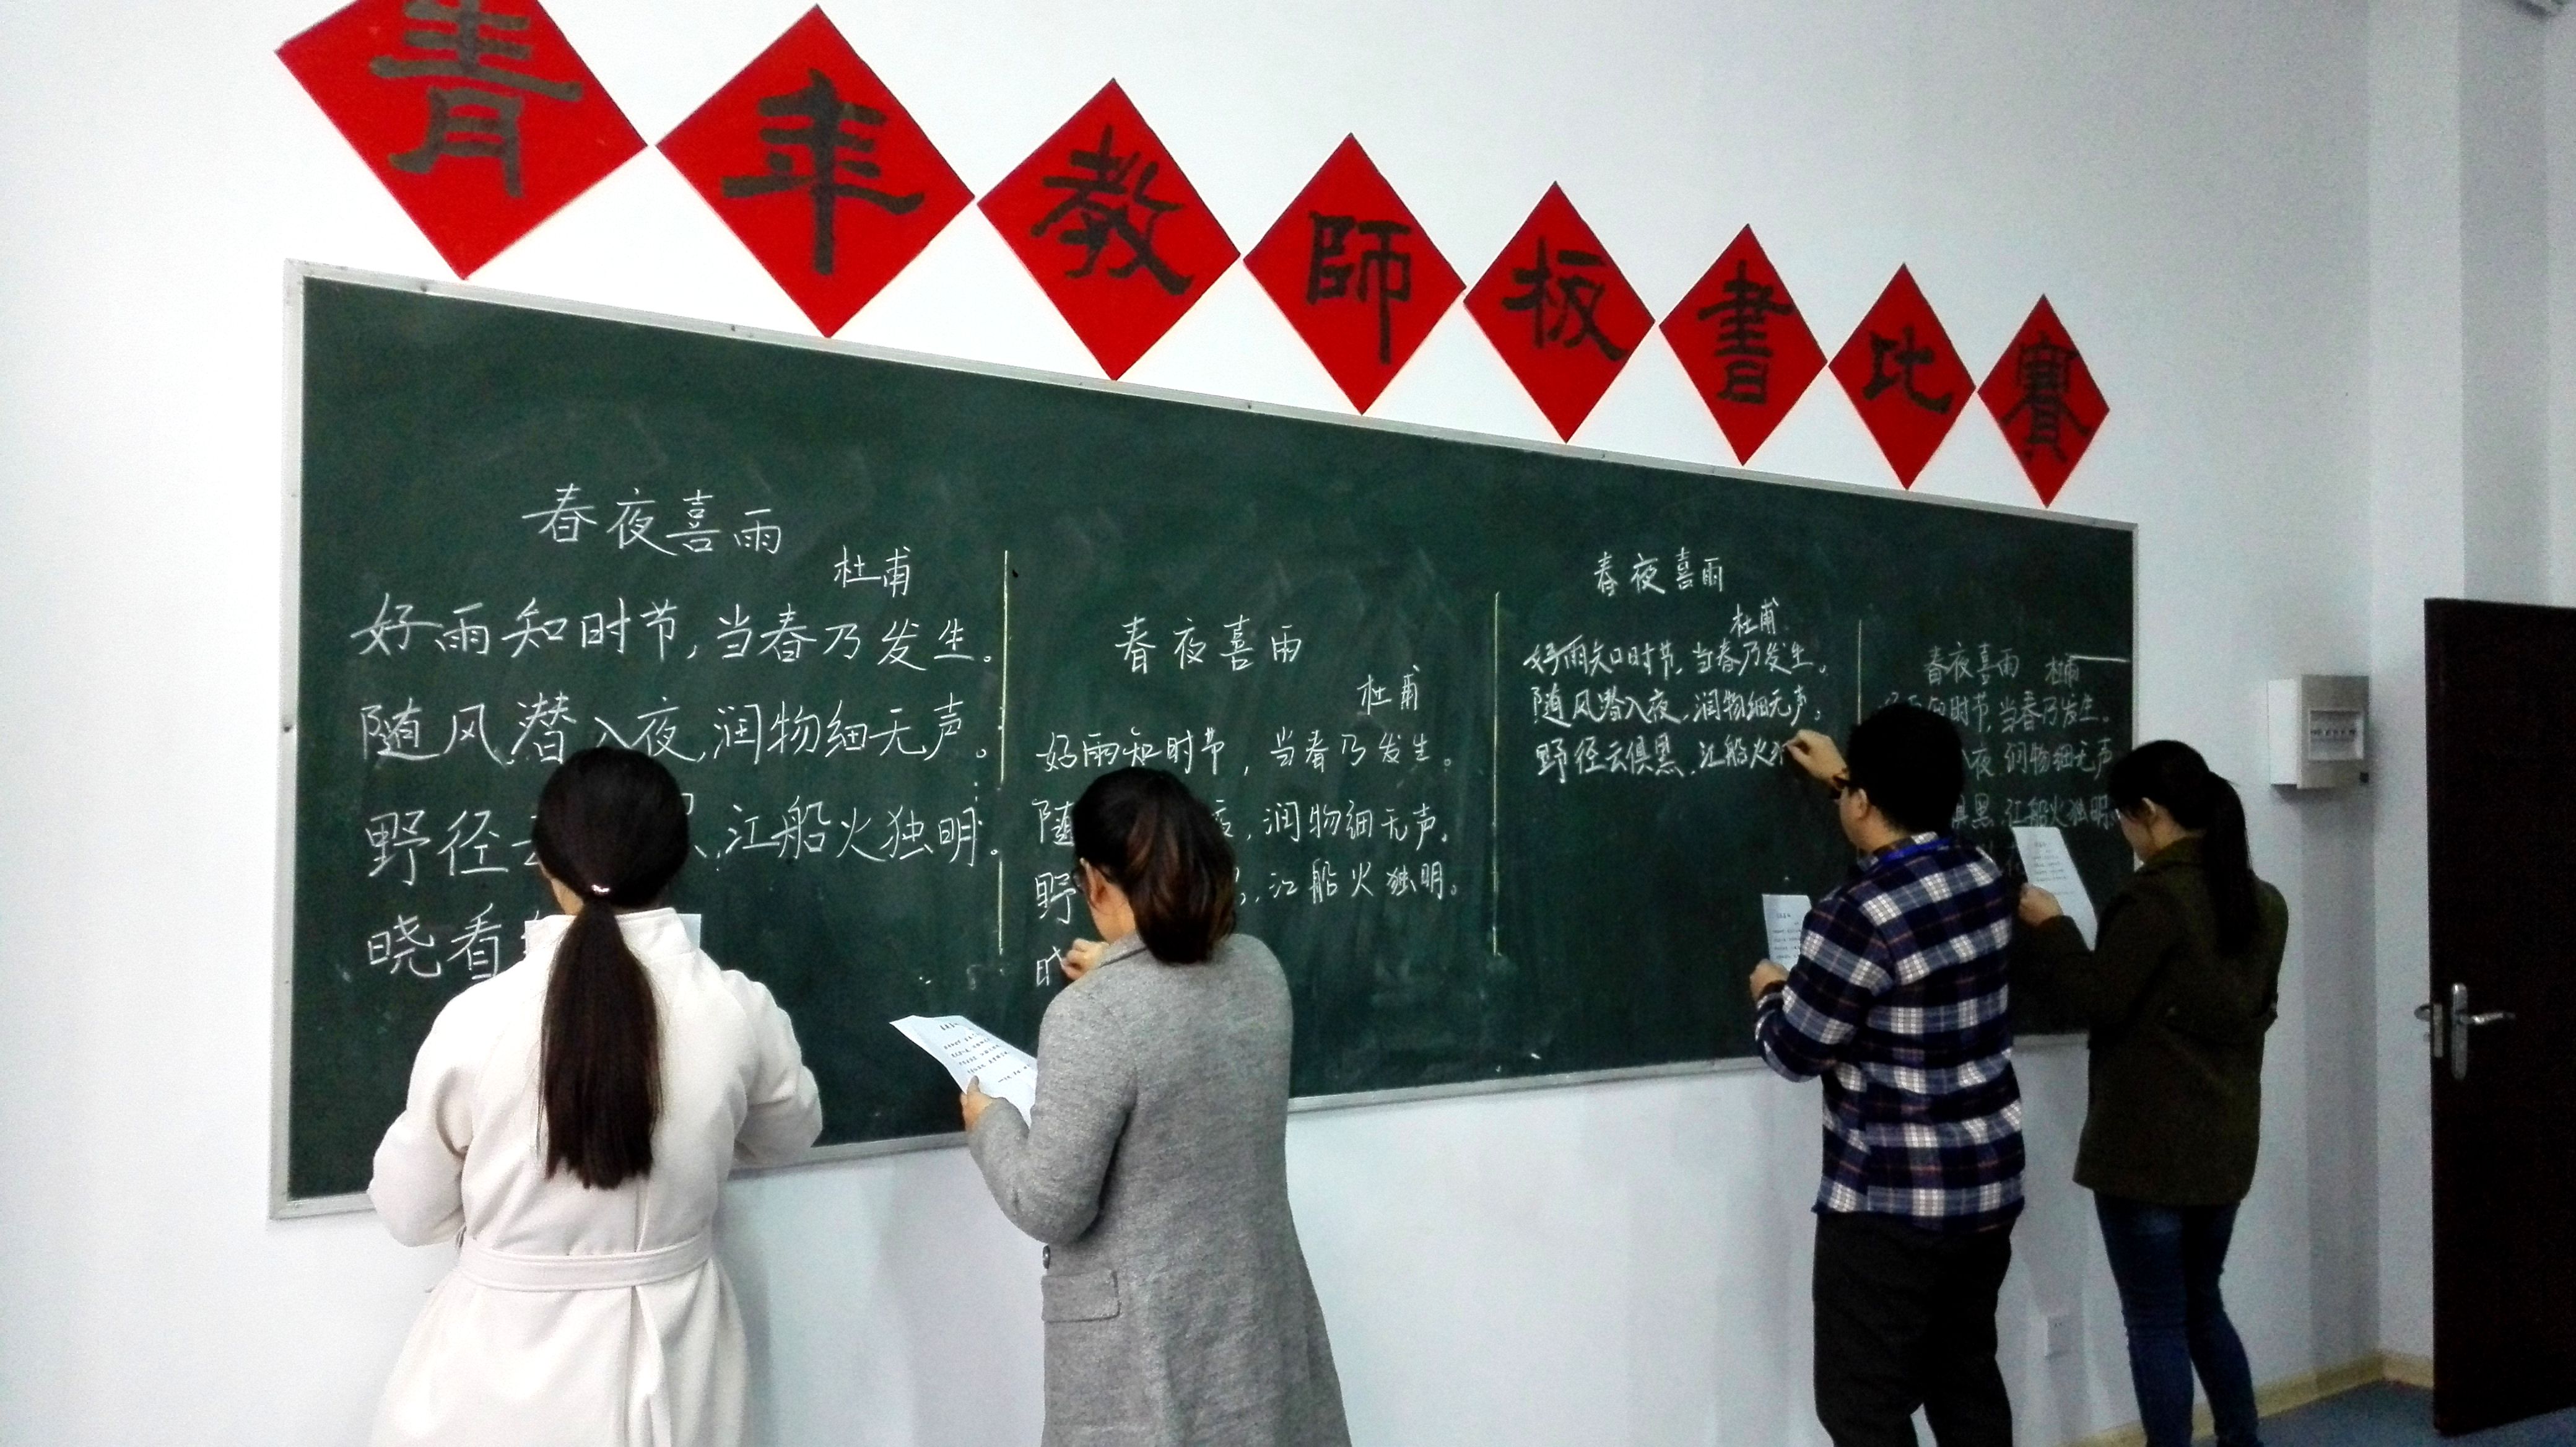 青年教師板書比賽
春夜喜雨
杜甫
好雨知时节,当春乃发生。
随风潜入夜,润物细无声。
野径云 ,江船火独明。
晓看
春夜喜雨
杜甫
好雨知时节,当春乃发生。
随 ,润物细无声。
野 ,江船火独明。
春夜喜雨
杜甫
好雨知时节,当春乃发生。
随风潜入夜,润物细无声。
野径云俱黑,江船火
春夜喜雨 杜甫
时节,当春乃发生。
夜,润物细无声
俱黑,江船火独明